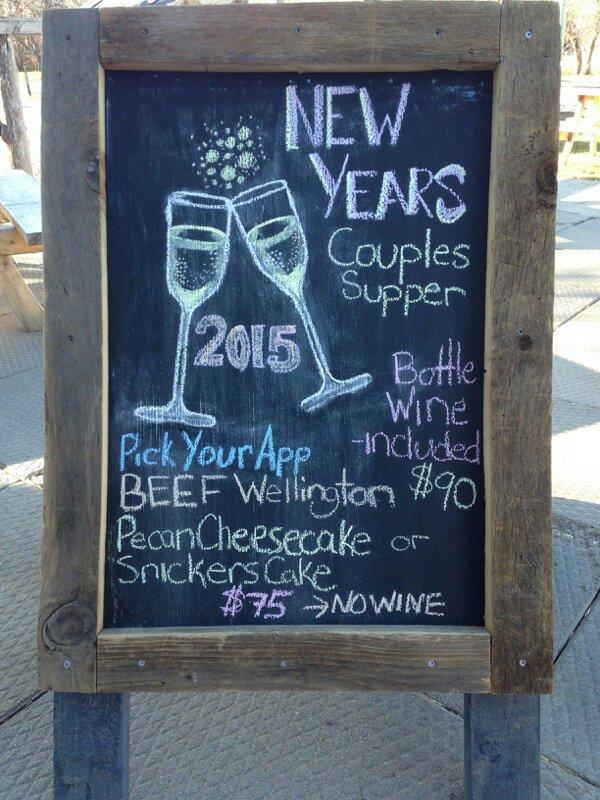 NEW
YEARS
Couples
Supper
2015
Bottle
Wine
-included
$90
Pick Your App
BEEF Wellington
Pecan Cheesecake or
Snickers Cake
$75 → NO WINE